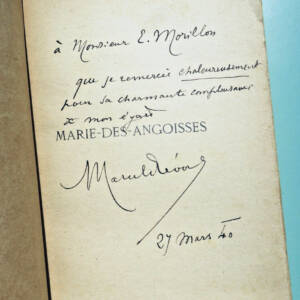 à Monsieur E. Morillon
que je remercie chaleureusement
pour sa charmante complaisance
à mon égard
MARIE-DES-ANGOISSES
Marcel Prévost
27 Mars 40